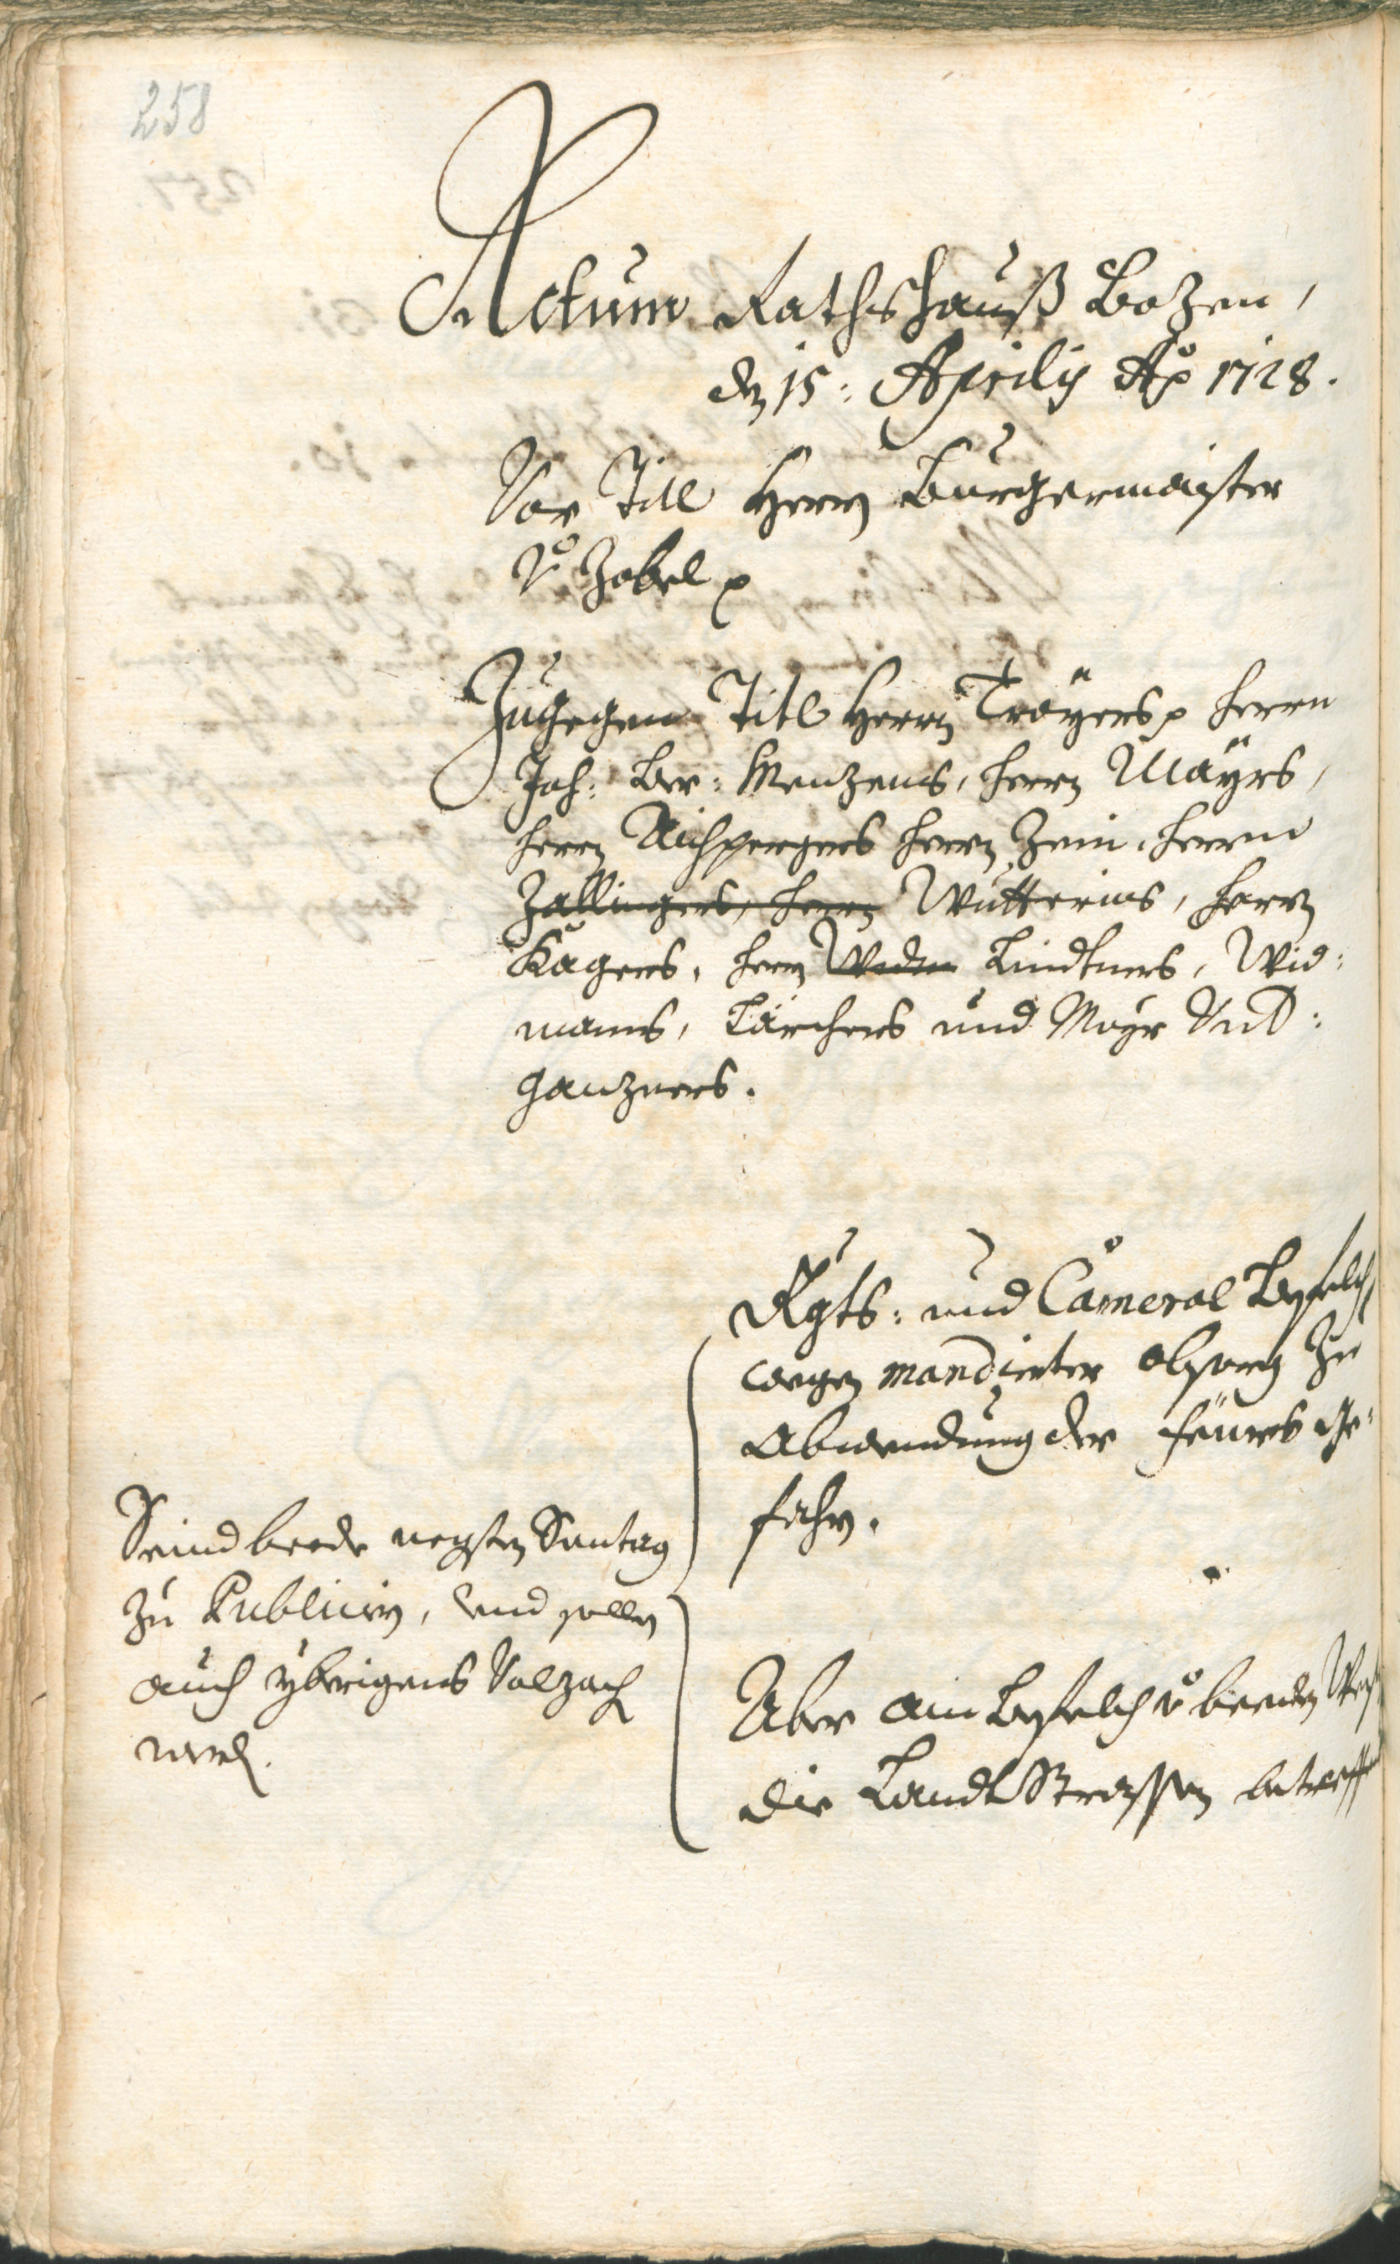 258
Actum Rathshauß Bozen,
den 15: Aprilis Ao 1728.
Vor Titl Herrn Burgermaister
Vo Zobel p
Zugegen Titl Herrn Troyers p Herrn
Joh: Ber: Menzens, Herrn Mayrs,
Herrn Aichpergers Herrn Zein, Herrn
Zallingers, Herrn Wutterins, Herrn
Kagers, Herrn Lindtners, Wid:
mans, Larchers und Mayr Und:
ganzners.
Rgts: und Cameral Befelch
wegen mandierter obsorg zu
Abwendung der Feurs Ge:
fahr.
Seind beede negsten Sontag
zu Publiciern, und sollen
auch yberigens Volzoch
werden.
Aber ain Befelch vo beeden
die Landt Strassen betreff